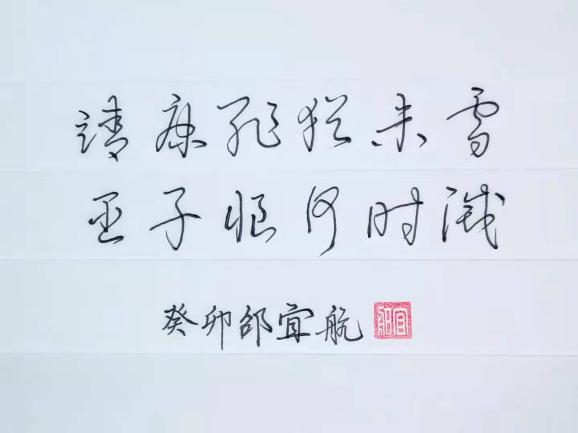 靖康耻犹未雪
臣子恨何时滅
癸卯邵宜航